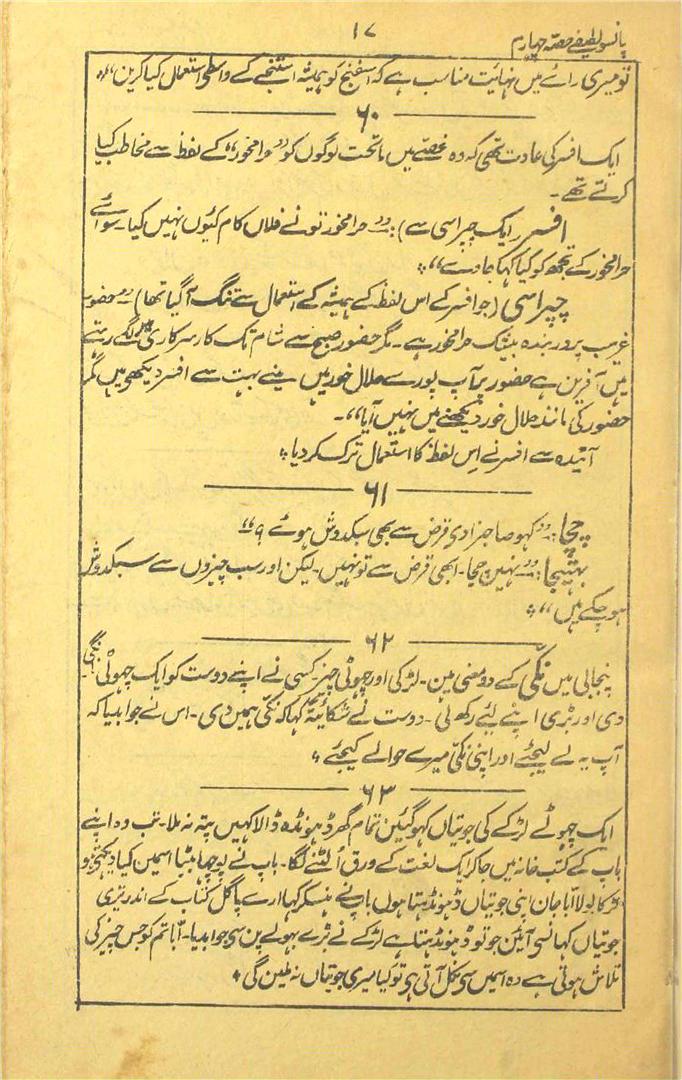 ۱۷
پانسو لطیفے حصہ چہارم
تو میری رائے میں نہائت مناسب ہے کہ اسفنج کو ہمیشہ استنجے کے واسطے استعمال کیا کریں“ ٭
۶۰
ایک افسر کی عادت تھی کہ وہ غصّے میں ماتحت لوگوں کو ”حرامخور“ کے لفظ سے مخاطب کیا
کرتے تھے ۔
افسر (ایک چپراسی سے) : ”حرامخور تو نے فلاں کام کیوں نہیں کیا ۔ سوائے
حرامخور کے تجھ کو کیا کہا جاوے“ ٭
چپراسی (جو افسر کے اس لفظ کے ہمیشہ کے استعمال سے تنگ آ گیا تھا) ”حضور
غریب پرور بندہ بیشک حرامخور ہے ۔ مگر حضور صبح سے شام تک کار سرکاری میں لگے رہتے
ہیں آفرین ہے حضور پر آپ پورے حلال خور ہیں مینے بہت سے افسر دیکھے ہیں مگر
حضور کی مانند حلال خور دیکھنے میں نہیں آیا“ ۔
آئندہ سے افسر نے اِس لفظ کا استعمال ترک کر دیا ٭
۶۱
چچا : ”کہو صاحبزادی قرض سے بھی سبکدوش ہوئے ؟“
بھتیجا : ”نہیں چچا ۔ ابھی قرض سے تو نہیں ۔ لیکن اور سب چیزوں سے سبکدوش
ہو چکے ہیں“ ٭
۶۲
پنجابی میں نکّی کے دو معنی ہین ۔ لڑکی اور چھوٹی چیز ۔ کسی نے اپنے دوست کو ایک چھوٹی نگی
دی اور بڑی اپنے لیئے رکھ لی ۔ دوست نے شکائیتہً کہا کہ نکّی ہمیں دی ۔ اس نے جوابدیا کہ
آپ یہ لے لیجئے اور اپنی نکّی میرے حوالے کیجئے ٭
۶۳
ایک چھوٹے لڑکے کی جوتیاں کھو گئیں تمام گھر ڈھونڈھ ڈالا کہیں پتہ نہ ملا ۔ تب وہ اپنے
باپ کے کتب خانہ میں جا کر ایک لغت کے ورق اُلٹنے لگا ۔ باپ نے پوچھا بیٹا اسمیں کیا دیکھتے ہو
لڑکا بولا ابّا جان اپنی جوتیاں ڈھونڈہتا ہوں باپ نے ہنسکر کہا ارے پاگل کتاب کے اندر تیری
جوتیاں کہا نسی آئین جو تو ڈھونڈہتا ہے لڑکے نے بڑے بھولے پن سی جوابدیا ۔ ابّا تم کو جس چیز کی
تلاش ہوتی ہے وہ اسمیں سی نکل آتی ہی تو کیا میری جوتیاں نہ ملین گی ٭